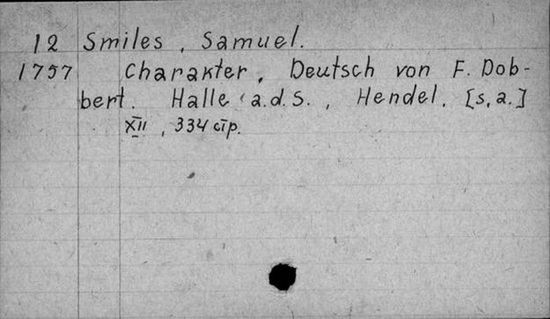 12 Smiles, Samuel.
1757 Charakter, Deutsch von F. Dob-
bert. Halle a.d.S., Hendel, [s,a.]
XII, 334 стр.